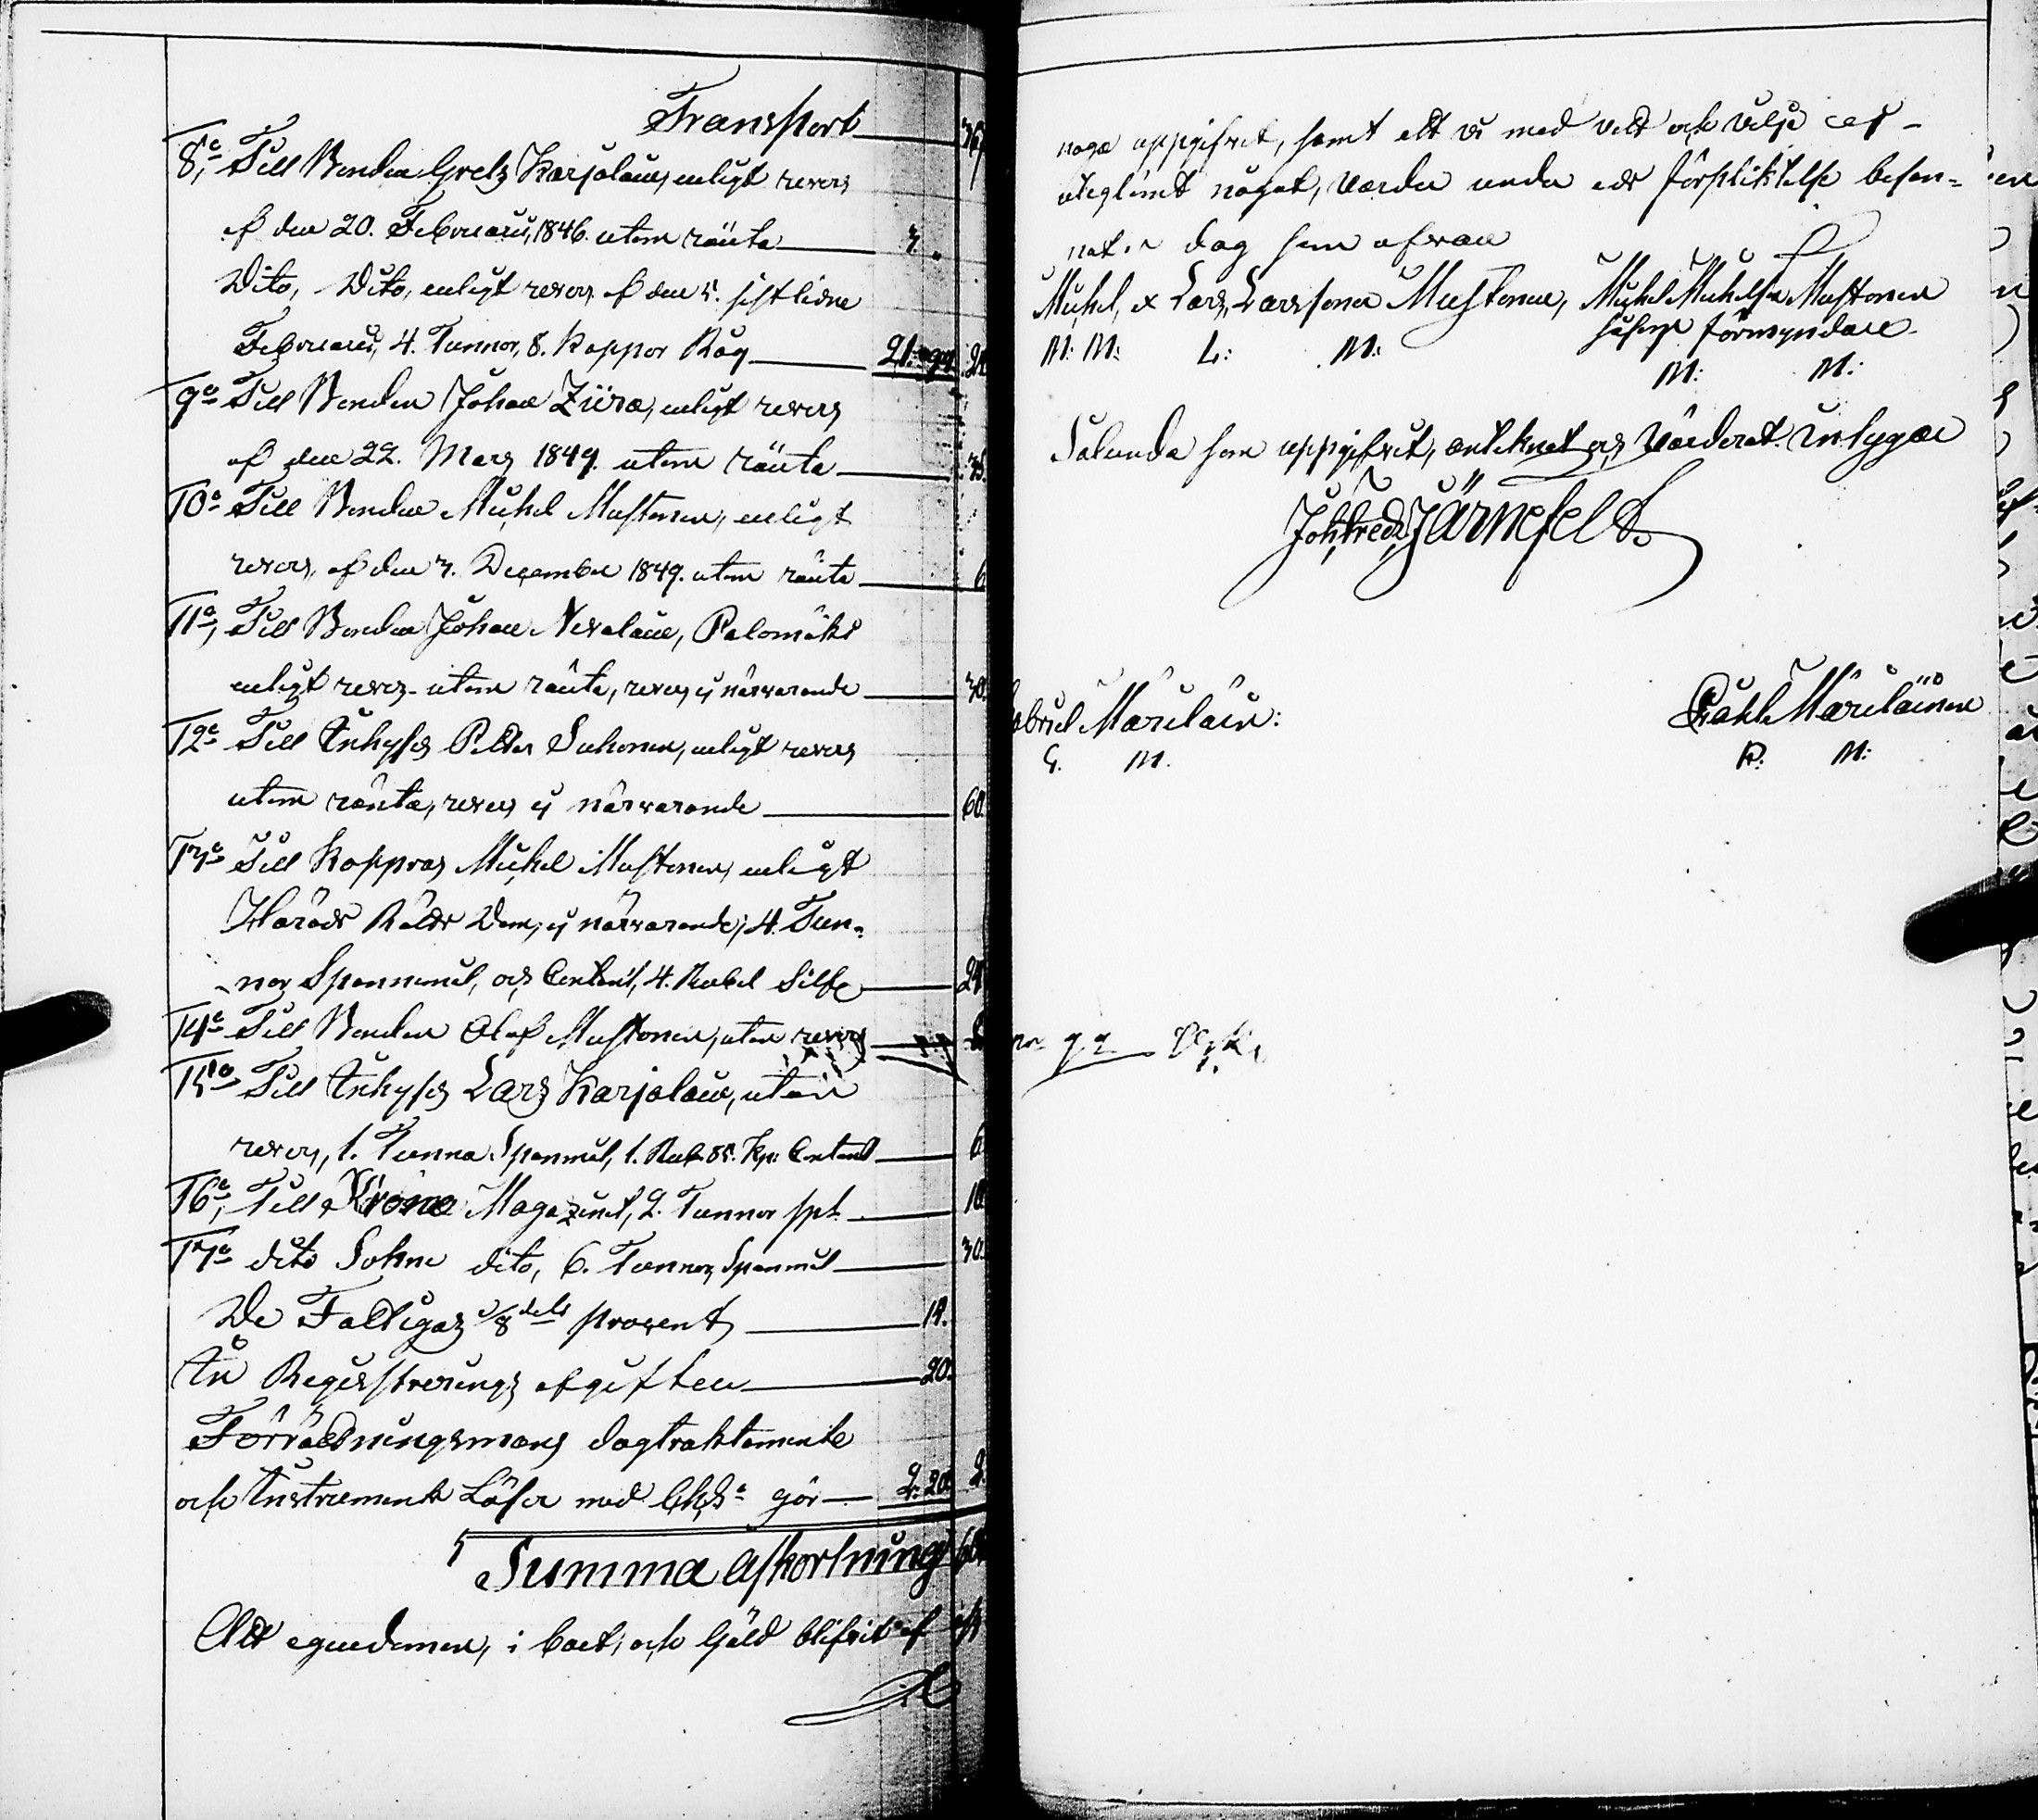 Transport 367
8:e Till Bonden Grels Karjolain, enligt revers
af den 20. Februari, 1846. utom ränta 3.
Dito, Dito, enligt revers af den 5. sistlidne
Februari, 4. Tunnor, 8. Kappor Råg 21. 90 24
9:e Till Bonden Johan Ziira, enligt revers
af den 22. Mars 1849. utom ränta 35.
10:e Till Bonden Michel Mustonen, enligt
revers, af den 3. December 1849. utom ränta 6
11:e, Till Bonden Johan Nevalain, Palomäki
enligt revers utom ränta, revers ej närvarande 30.
12:e Till Inhyses Petter Suhonen, enligt revers
utom ränta, revers ej närvarande 60.
13:e Till Koppras Michel Mustonen, enligt
Härads Rätts Dom, ej närvarande, 4. Tun-
nor Spannmål, och Contant, 4. Rubel Silfver 24
14:e Till Bonden Olof Mustonen, utom revers
15:e Till Inhyses Lars Karjolain, utom
revers, 1. Tunna Spanmål, 1. Rub. 85. Kp: Contant 6
16:e, Till Krono Magazinet, 2. Tunnor spl. 10
17:e dito Sokne dito, 6. Tunnor Spanmål 30.
De Fattigas 1/8 dels procent 15.
In Registrerings afgiften 20.
Förrättningsmans dagtraktamente
och Instruments Lösen med gör 2. 20. 2.
Summa Afkortning
Att egendomen, i boet, och Gäld blifvit af
noga uppgifvit, samt att vi med vett och vilje ej
uteglömt något, varder under eds förpliktelse besan-
nat. dag som ofvan
Michel, & Lars, Larssoner Mustonen, Michel Michelss: Mustonen
M: M: L: M: förmyndare
M: M:
Salunda som uppgifvit, antecknat och Värderat Intygar
Joh: Fredr: Järnefelt.
Gabriel Märiläin: Påhl Märiläinen
G. M. P: M: